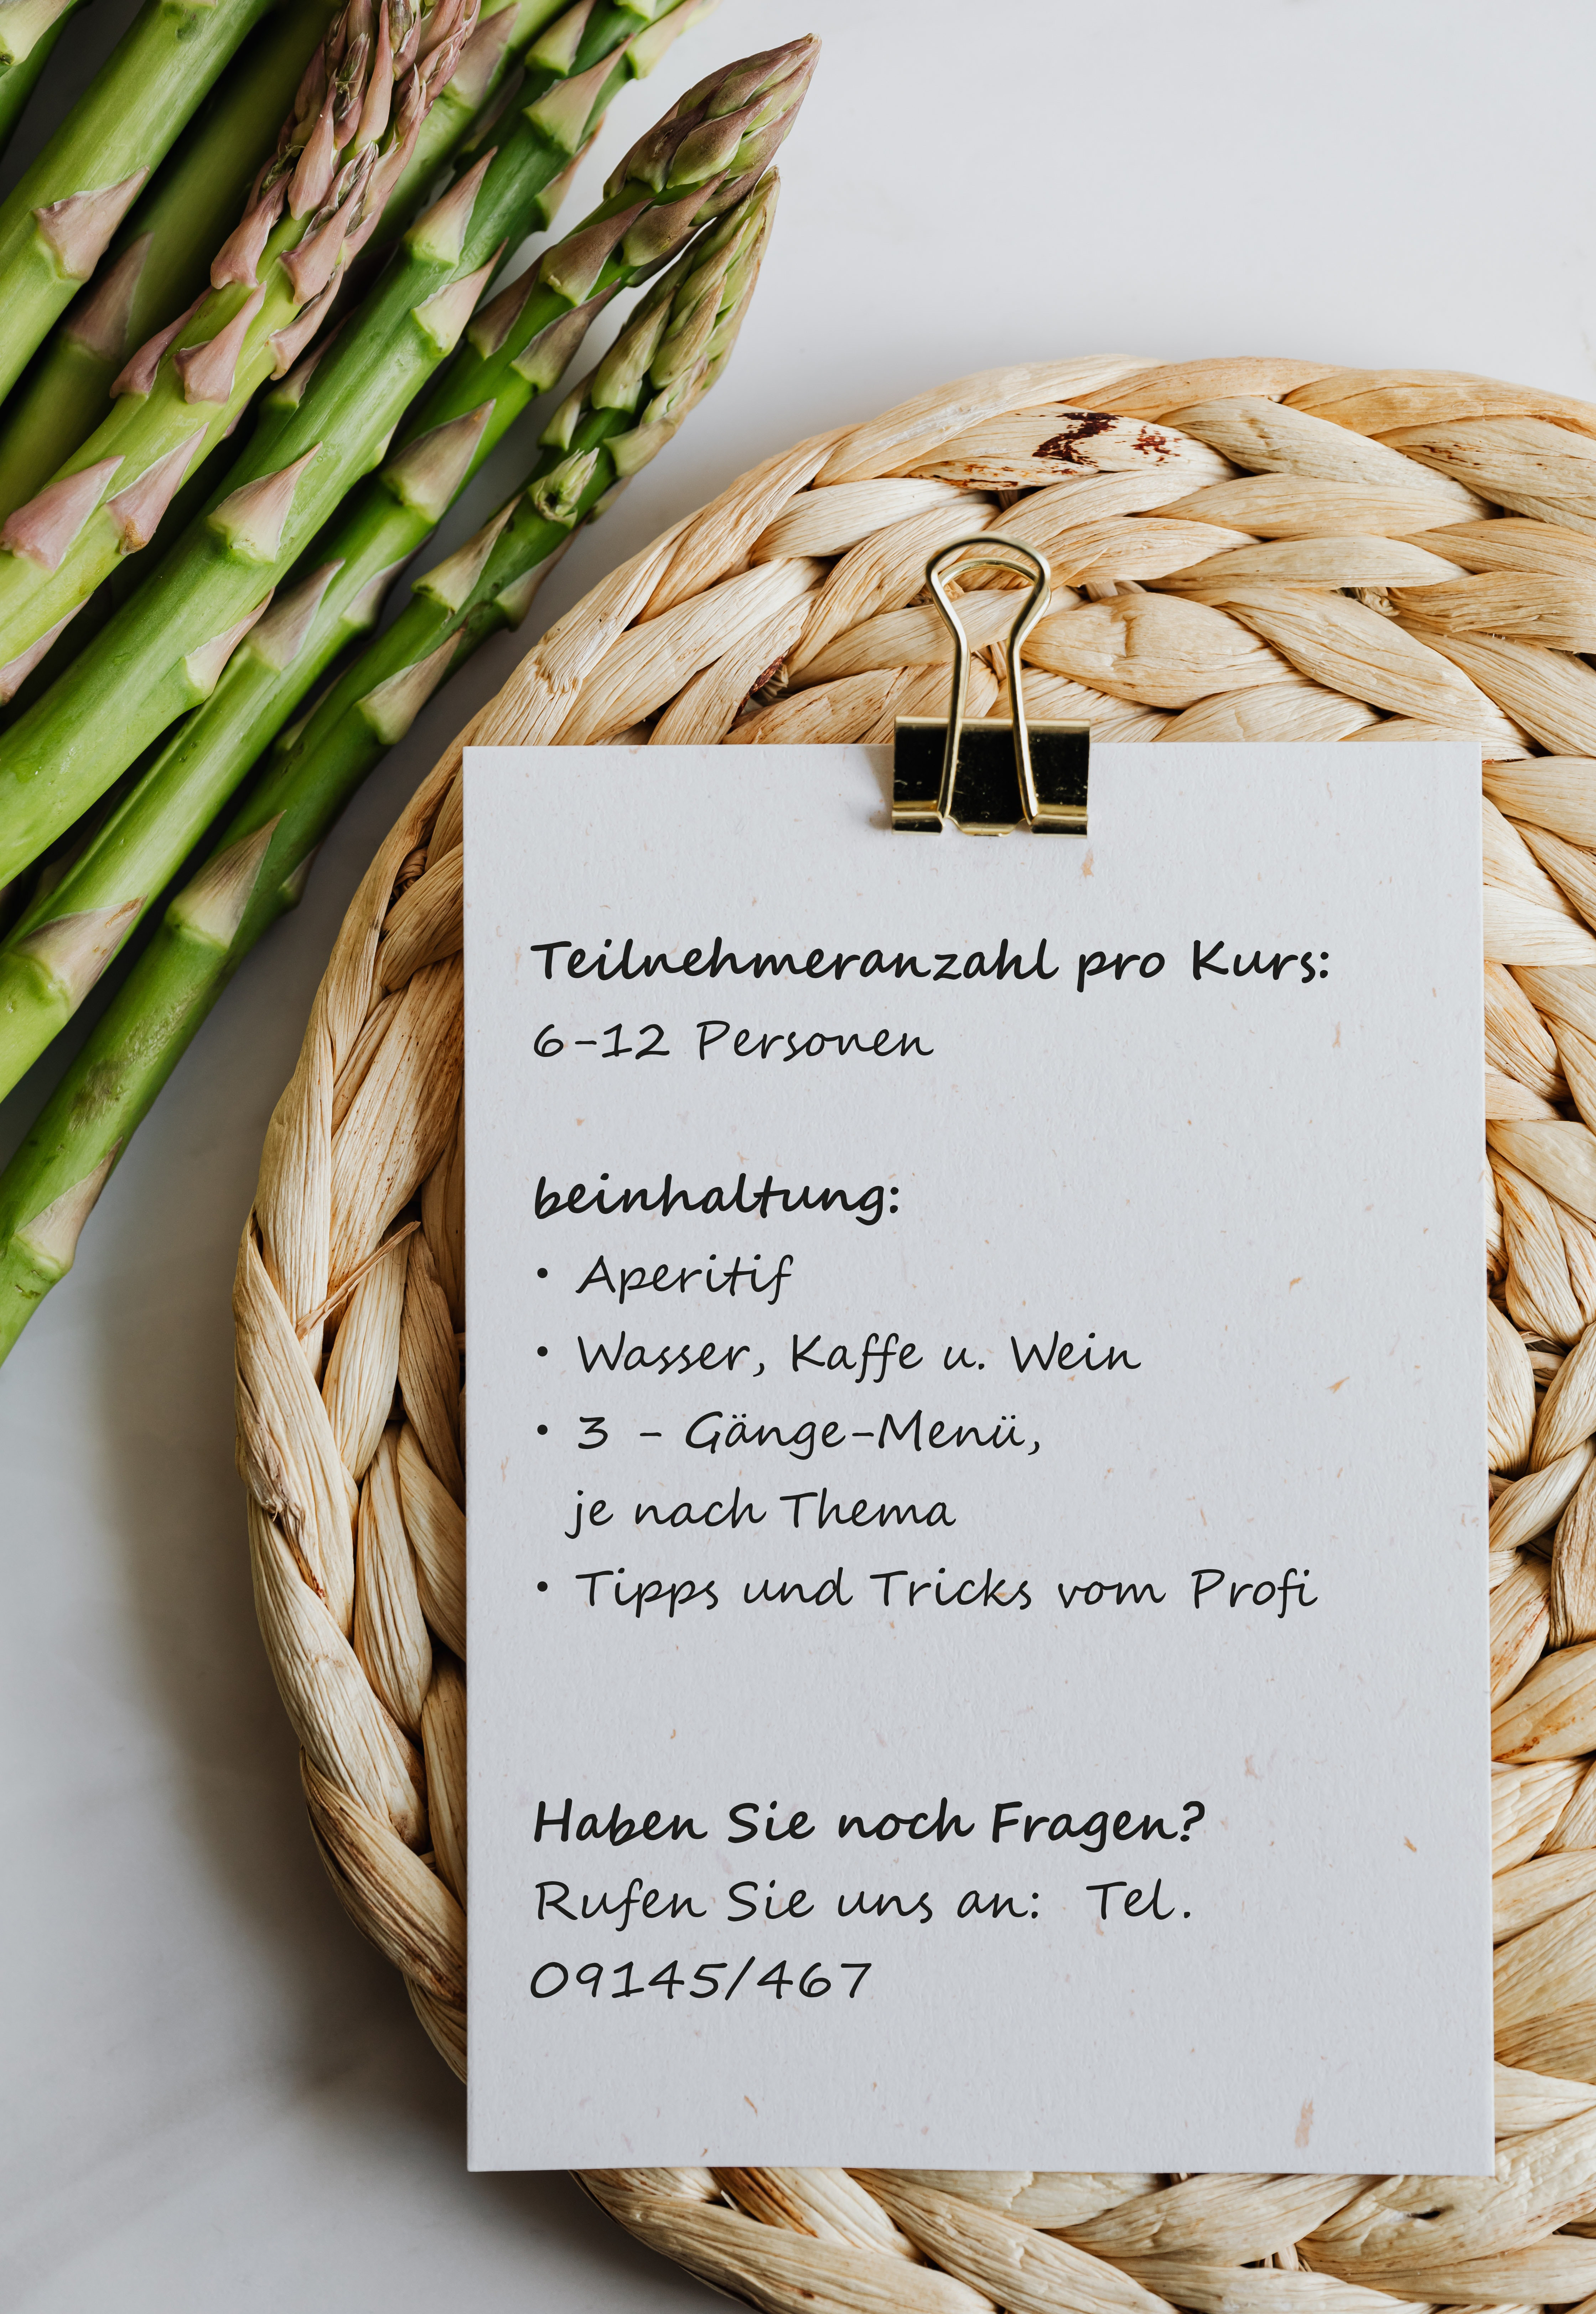 Teilnehmeranzahl pro Kurs:
6-12 Personen
beinhaltung:
• Aperitif
• Wasser, Kaffe u. Wein
• 3 - Gänge-Menü,
je nach Thema
• Tipps und Tricks vom Profi
Haben Sie noch Fragen?
Rufen Sie uns an: Tel.
09145/467